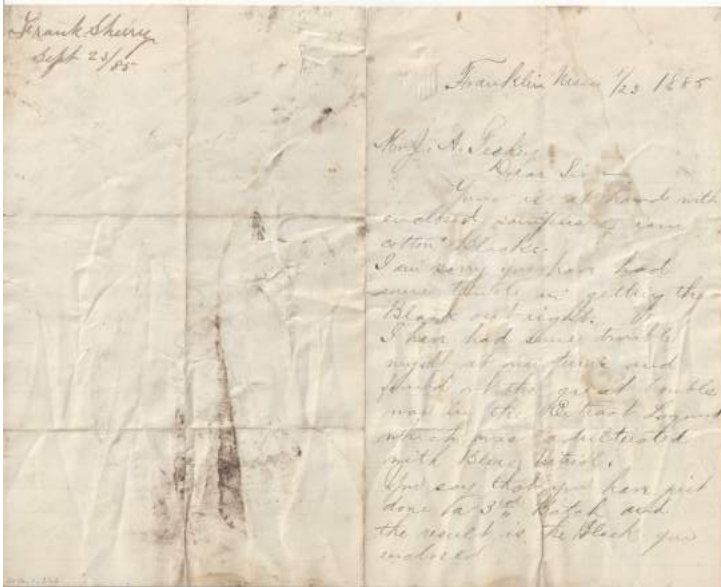 Frank Sherry
Sept 23/85
Franklin Mass 9/23 1885
Mr J. A.
Dear Sir
Yours is at hand with
enclosed samples of raw
cotton Blacks
I am sorry you have had
some trouble in getting the
Black out right.
I have had some trouble
myself at one time and
found out the great trouble
was in the Extract Logwood
which was adulterated
with Blue Vitriol.
You say that you have just
done a 3rd batch and
the result is the Black you
enclosed